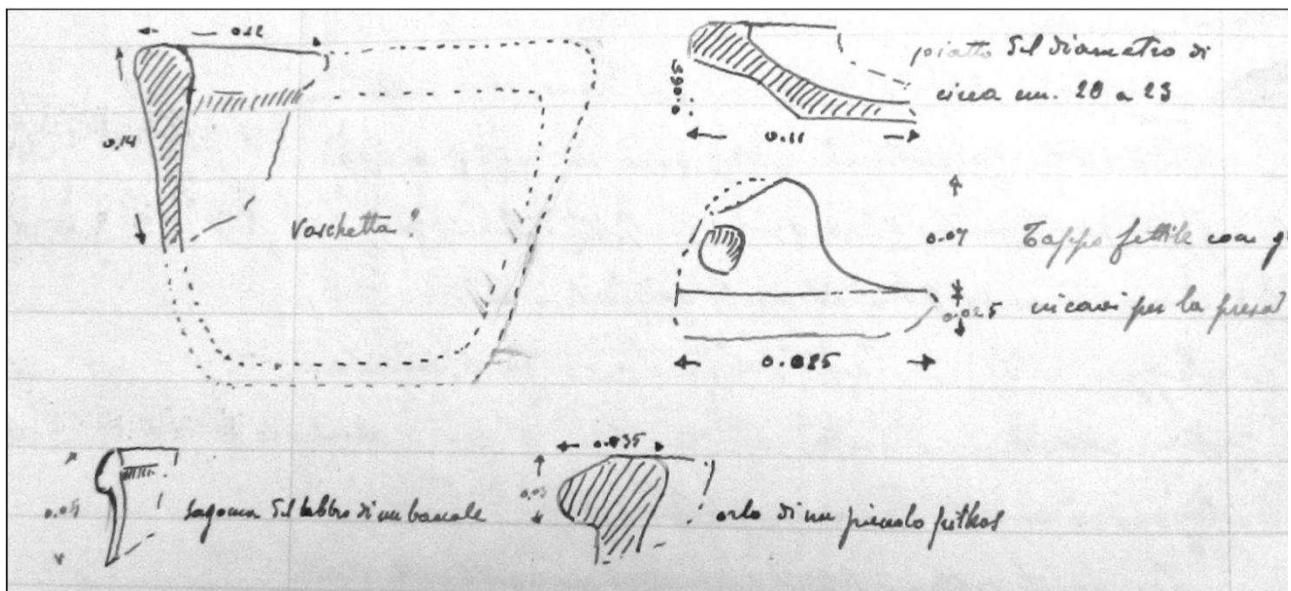 0.12
0.14
Vaschetta?
piatto del diametro di
circa cm. 20 a 23
0.11
0.07
Tappo fittile con
incavi per la presa
0.025
0.085
sagoma del labbro di un boccale
0.035
orlo di un piccolo pithos